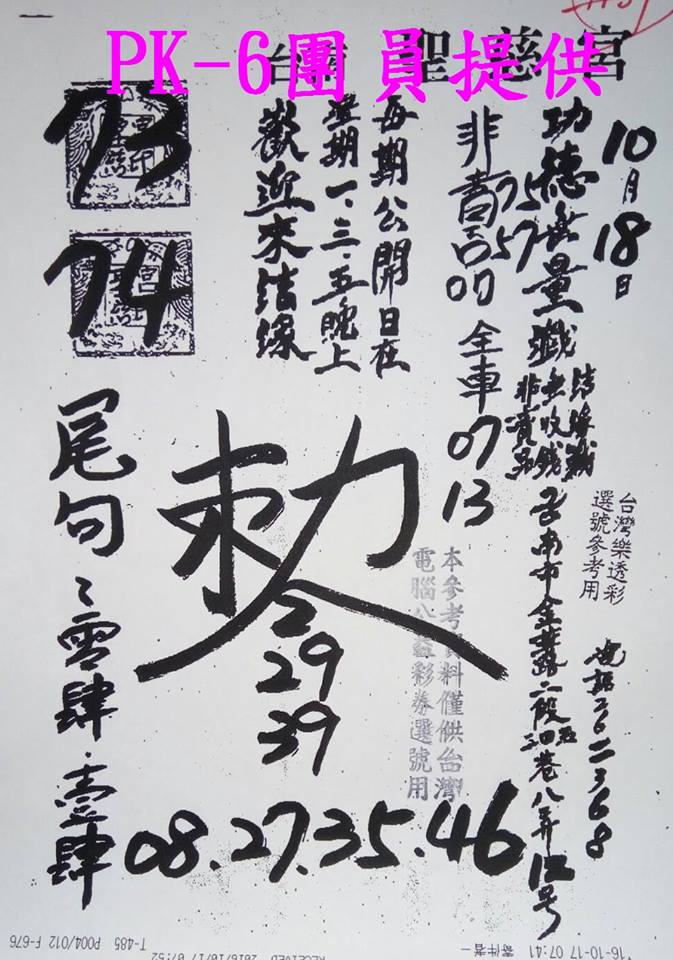 PK-6團員提供
台 聖慈宮
10月18日
功德無量
結緣
非賣品
非賣品
25
57
07
全車
07
13
每期公開日在
星期一、三、五晚上
歡迎來結緣
73
74
台灣樂透彩
選號參考用
台南市金華路二段
巷八弄12号
電話2622368
本參考資料僅供台灣
電腦公益彩券選號用
敕
2
29
39
尾句:零肆.壹肆
08.27.35.46
'16-10-17 07:41 寄件者-
RECEIVED 2016/10/17 07:52
T-485 P004/012 F-676